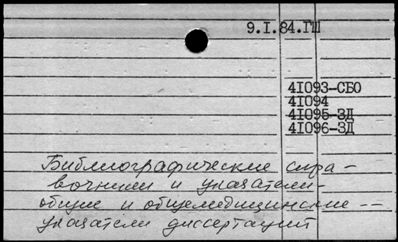 9.I.84.ГШ
41093-СБО
41094
41095-ЗД
41096-ЗД
Библиографические спра-
вочники и указатели -
общие и общемедицинские --
указатели диссертаций